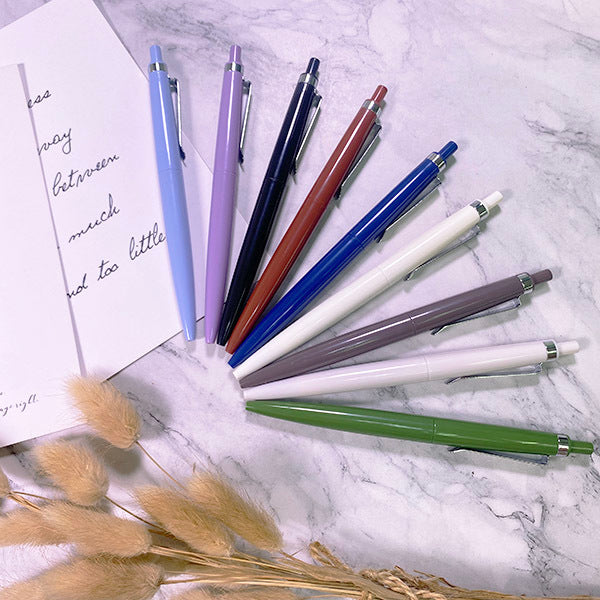 ess
way
between
much
nd too little
right.